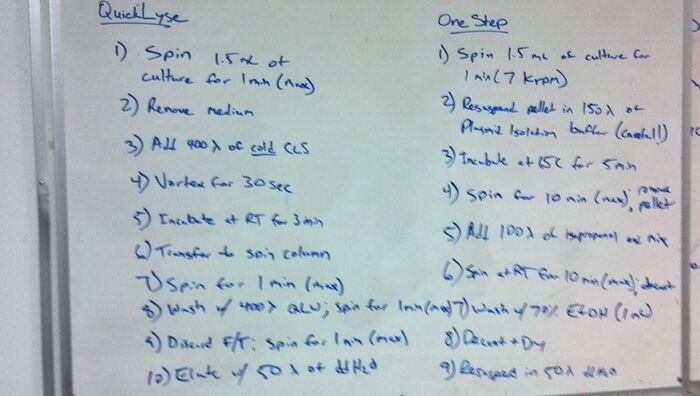 QuickLyse
1) Spin 1.5 mL of
culture for 1 min (max)
2) Remove medium
3) Add 400 λ of cold CLS
4) Vortex for 30 sec
5) Incubate at RT for 3 min
6) Transfer to spin column
7) Spin for 1 min (max)
8) Wash w/ 400 λ QLW; spin for 1 min (max)
9) Discard F/T; spin for 1 min (max)
10) Elute w/ 50 λ of ddH2O
One Step
1) Spin 1.5 mL of culture for
1 min (7 Krpm)
2) Resuspend pellet in 150 λ of
Plasmid Isolation buffer (careful!)
3) Incubate at 65C for 5 min
4) Spin for 10 min (max); remove
pellet
5) Add 100 λ of isopropanol and mix
6) Spin at RT for 10 min (max); decant
7) Wash w/ 70% EtOH (1 mL)
8) Decant + Dry
9) Resuspend in 50 λ ddH2O